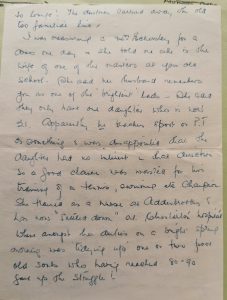 so lonely! The another carried away the old
too familiar have!
I was measuring a Mrs Pachowsky for a
dress one day & she told me she is the
wife of one of the masters at your old
School. She said her husband remembers
you as one of the brightest lads - She said
they only have one daughter who is now
21. Apparently he teaches sport or P.T
or something & was disappointed that the
daughter had no talent in that direction
So a good chance was wasted for her
training & a tennis, swimming etc Champion
She trained as a nurse at Addenbrookes &
has now "settled down" at Chesterton hospital
When amongst her duties on a bright spring
morning was tidying up one or two poor
old souls who having reached 80-90
gave up the struggle!